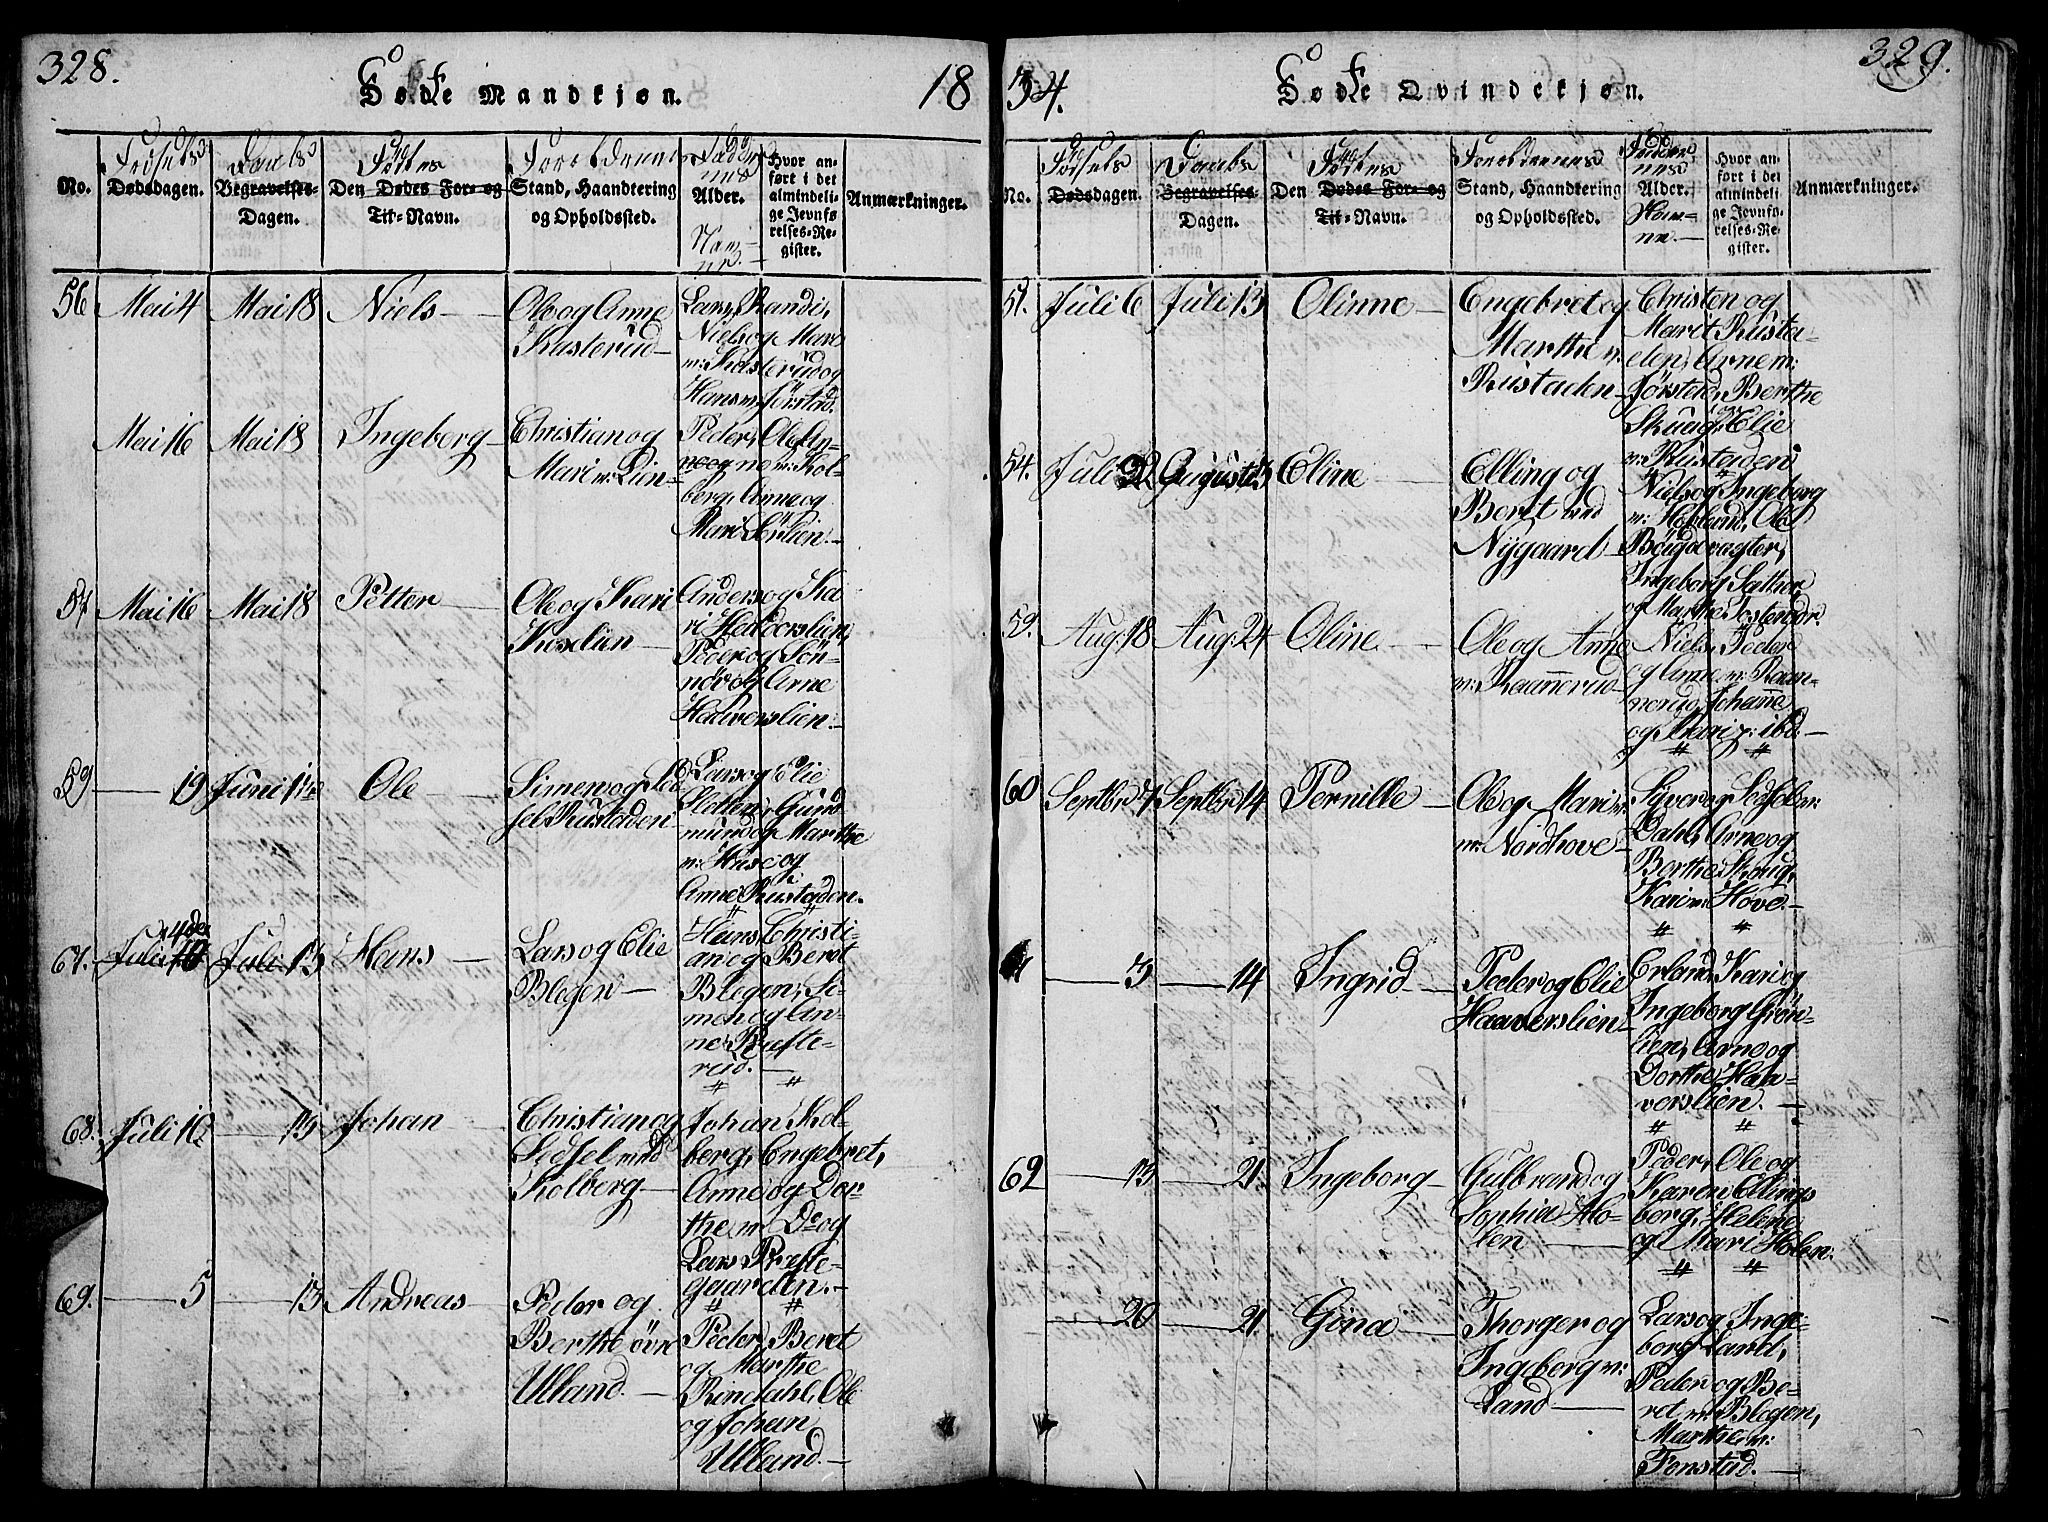 328.
Fødte Mandkjøn.
18
No.
Fødsels
Dødsdagen.
Daabs
Begravelses-
Dagen.
Fødtes
Den Dødes For- og
Til-Navn.
Forældrenes
Stand, Haandtering
og Opholdssted.
Fadder
nes
Alder.
Nav-
ne.
Hvor an-
ført i det
almindeli-
ge Jevnfø
relses-Re-
gister.
Anmærkninger.
56 Mai 4 Mai 18 Niels
Ole og Anne
Kasterud
Lars, Randi,
Niels og Mari
m: Kasterud og
Hans m: Jørstad.
Mai 16 Mai 18 Ingeberg
Christian og
Mari m: Lien
Peder, Ole An-
ne og m: Kol-
berg, Anne og
Mari Sørlien.
57 Mai 16 Mai 18 Petter
Ole og Kari
Koslien
Anders og Ka
ri Haaverslien,
Peder og Søn-
nøv og Arne
Haaverslien.
59 19 Juni 1ste Ole
Simen og Sed
sel Rustaden
Lars og Elie
Sletten, Gund
mund og Marthe
m: Huse og
Anne Rustaden.
67. Juli 10 4de Juli 13 Hans
Lars og Elie
Blegen
Hans, Christi-
an og Beret
Blegen, Si-
men og An-
ne Kaste-
rud.
68. Juli 10 13 Johan
Christian og
Sedsel mnd
Kolberg
Johan Kol-
berg, Engebret,
Anne og Dor-
the m Do og
Lars Præste-
gaarden.
69. 5 13 Andreas
Peder og
Berthe øvre
Ulland.
Peder, Beret
og Marthe
Rindahl, Ole
og Johan
Ulland.
34.
Fødte Qvindekjøn.
329.
No.
Fødsels
Dødsdagen.
Daabs
Begravelses
Dagen.
Fødtes
Den Dødes For- og
Til-Navn.
Forældrenes
Stand, Haandtering
og Opholdssted.
Fadder
nes
Alder.
Nav-
ne.
Hvor an-
ført i det
almindeli-
ge Jevnfø-
relses-Re-
gister.
Anmærkninger.
51. Juli 6 Juli 13 Olinne
Engebret og
Marthe m:
Rustaden
Christen og
Marit Rusta-
en, Arne m:
Jørstad, Berthe
Skuug, og Elie
m: Rustaden
54. Juli 22 August 3 Eline
Elling og
Berit mnd
Nygaard
Niels og Ingeborg
m: Hovland, Ole
Bøigdevagter,
Ingeborg Sæther,
og Marthe
59. Aug: 18 Aug: 24 Oline
Ole og Anne
m: Raannerud
Niels, Peder
og Anne m: Raan-
nerud, Johanne
og Mari p: ibd.
60 Septbr 7 Septbr 14 Pernille
Ole og Mari m:
m: Nordhove
Syver og Sedsel m:
Dahl, Arne og
Berthe Skoug,
Kari m: Hove.
3 14 Ingrid
Peder og Elie
Haaverslien
Erland, Kari og
Ingeborg Grøn-
lien, Arne og
Dorthe Haa-
verslien.
62 13 21 Ingeborg
Gulbrand og
Sophia Ho-
len
Peder, Ole og
Karen Ellings
berg, Helene
og Mari Holen.
20 21 Gøna
Thorger og
Ingeborg m:
Land
Lars og Inge-
borg Land,
Peder og Be-
ret m Blegen,
Marthe m:
Fonstad.